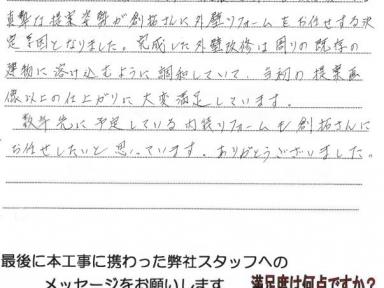 真摯な提案姿勢が創拓さんに外壁リフォームをお任せする決
定要因となりました。完成した外壁改修は周りの既存の
建物に溶け込むように調和していて、当初の提案画
像以上の仕上がりに大変満足しています。
数年先に予定している内装リフォームも創拓さんに
お任せしたいと思っています。ありがとうございました。
最後に本工事に携わった弊社スタッフへの
メッセージをお願いします 満足度は何点ですか?